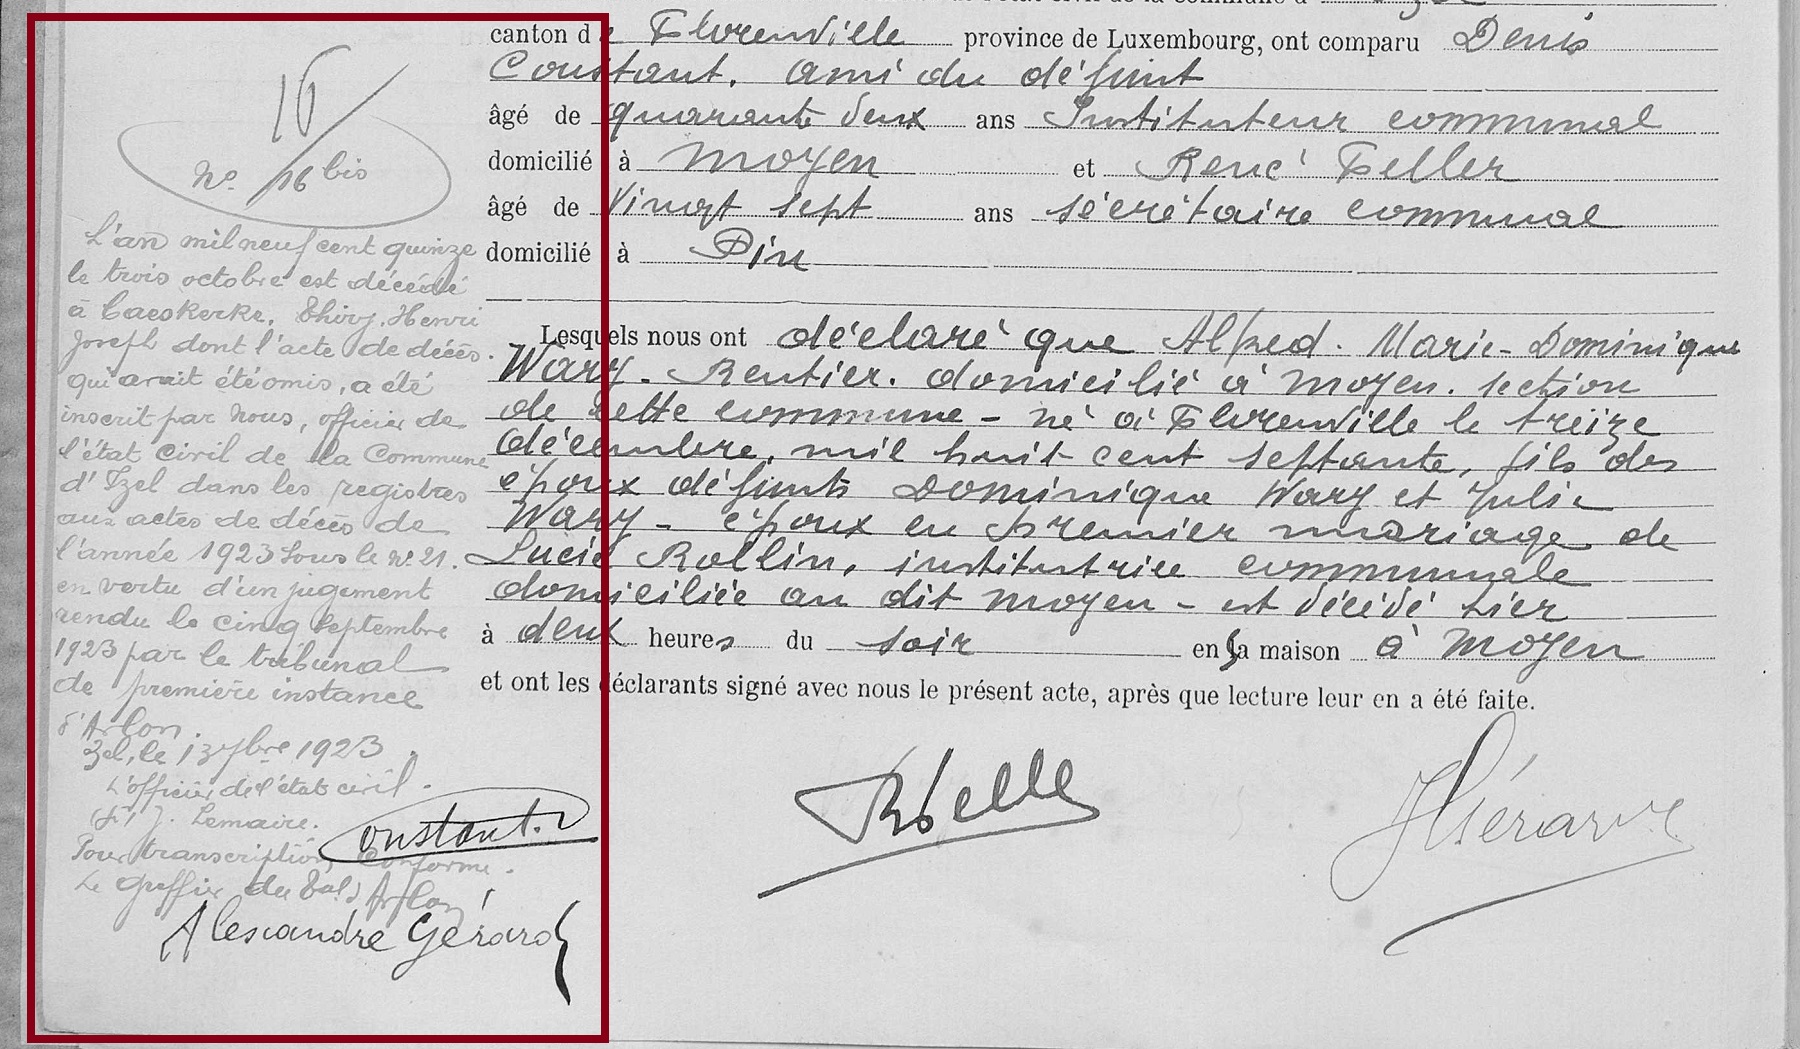 16
No 16 bis
L'an mil neuf cent quinze
le trois octobre est décédé
à Caeskerke, Thiry, Henri
Joseph dont l'acte de décès
qui avait été omis, a été
inscrit par nous, officier de
l'état civil de la Commune
d'Izel dans les registres
aux actes de décès de
l'année 1923 sous le no 21.
en vertu d'un jugement
rendu le cinq septembre
1923 par le tribunal
de première instance
d'Arlon.
Izel, le 13 7bre 1923.
L'officier de l'état civil.
(s) J. Lemaire.
Pour transcription conforme.
Le Greffier du Bal d'Arlon
canton de Florenville province de Luxembourg, ont comparu Denis
Constant. ami du défunt
âgé de quarante deux ans Instituteur communal
domicilié à Moyen et René Feller
âgé de Vingt sept ans sécrétaire communal
domicilié à Pin
Lesquels nous ont déclaré que Alfred. Marie-Dominique
Wary. Rentier. domicilié à Moyen. section
de cette commune - né à Florenville le treize
décembre, mil huit cent septante, fils des
époux défunts Dominique Wary et Julie
Wary - époux en premier mariage de
Lucie Rollin, institutrice communale
domiciliée au dit Moyen - est décédé hier
à deux heures du soir en sa maison à Moyen
et ont les déclarants signé avec nous le présent acte, après que lecture leur en a été faite.
Constant.
Alexandre Gérard